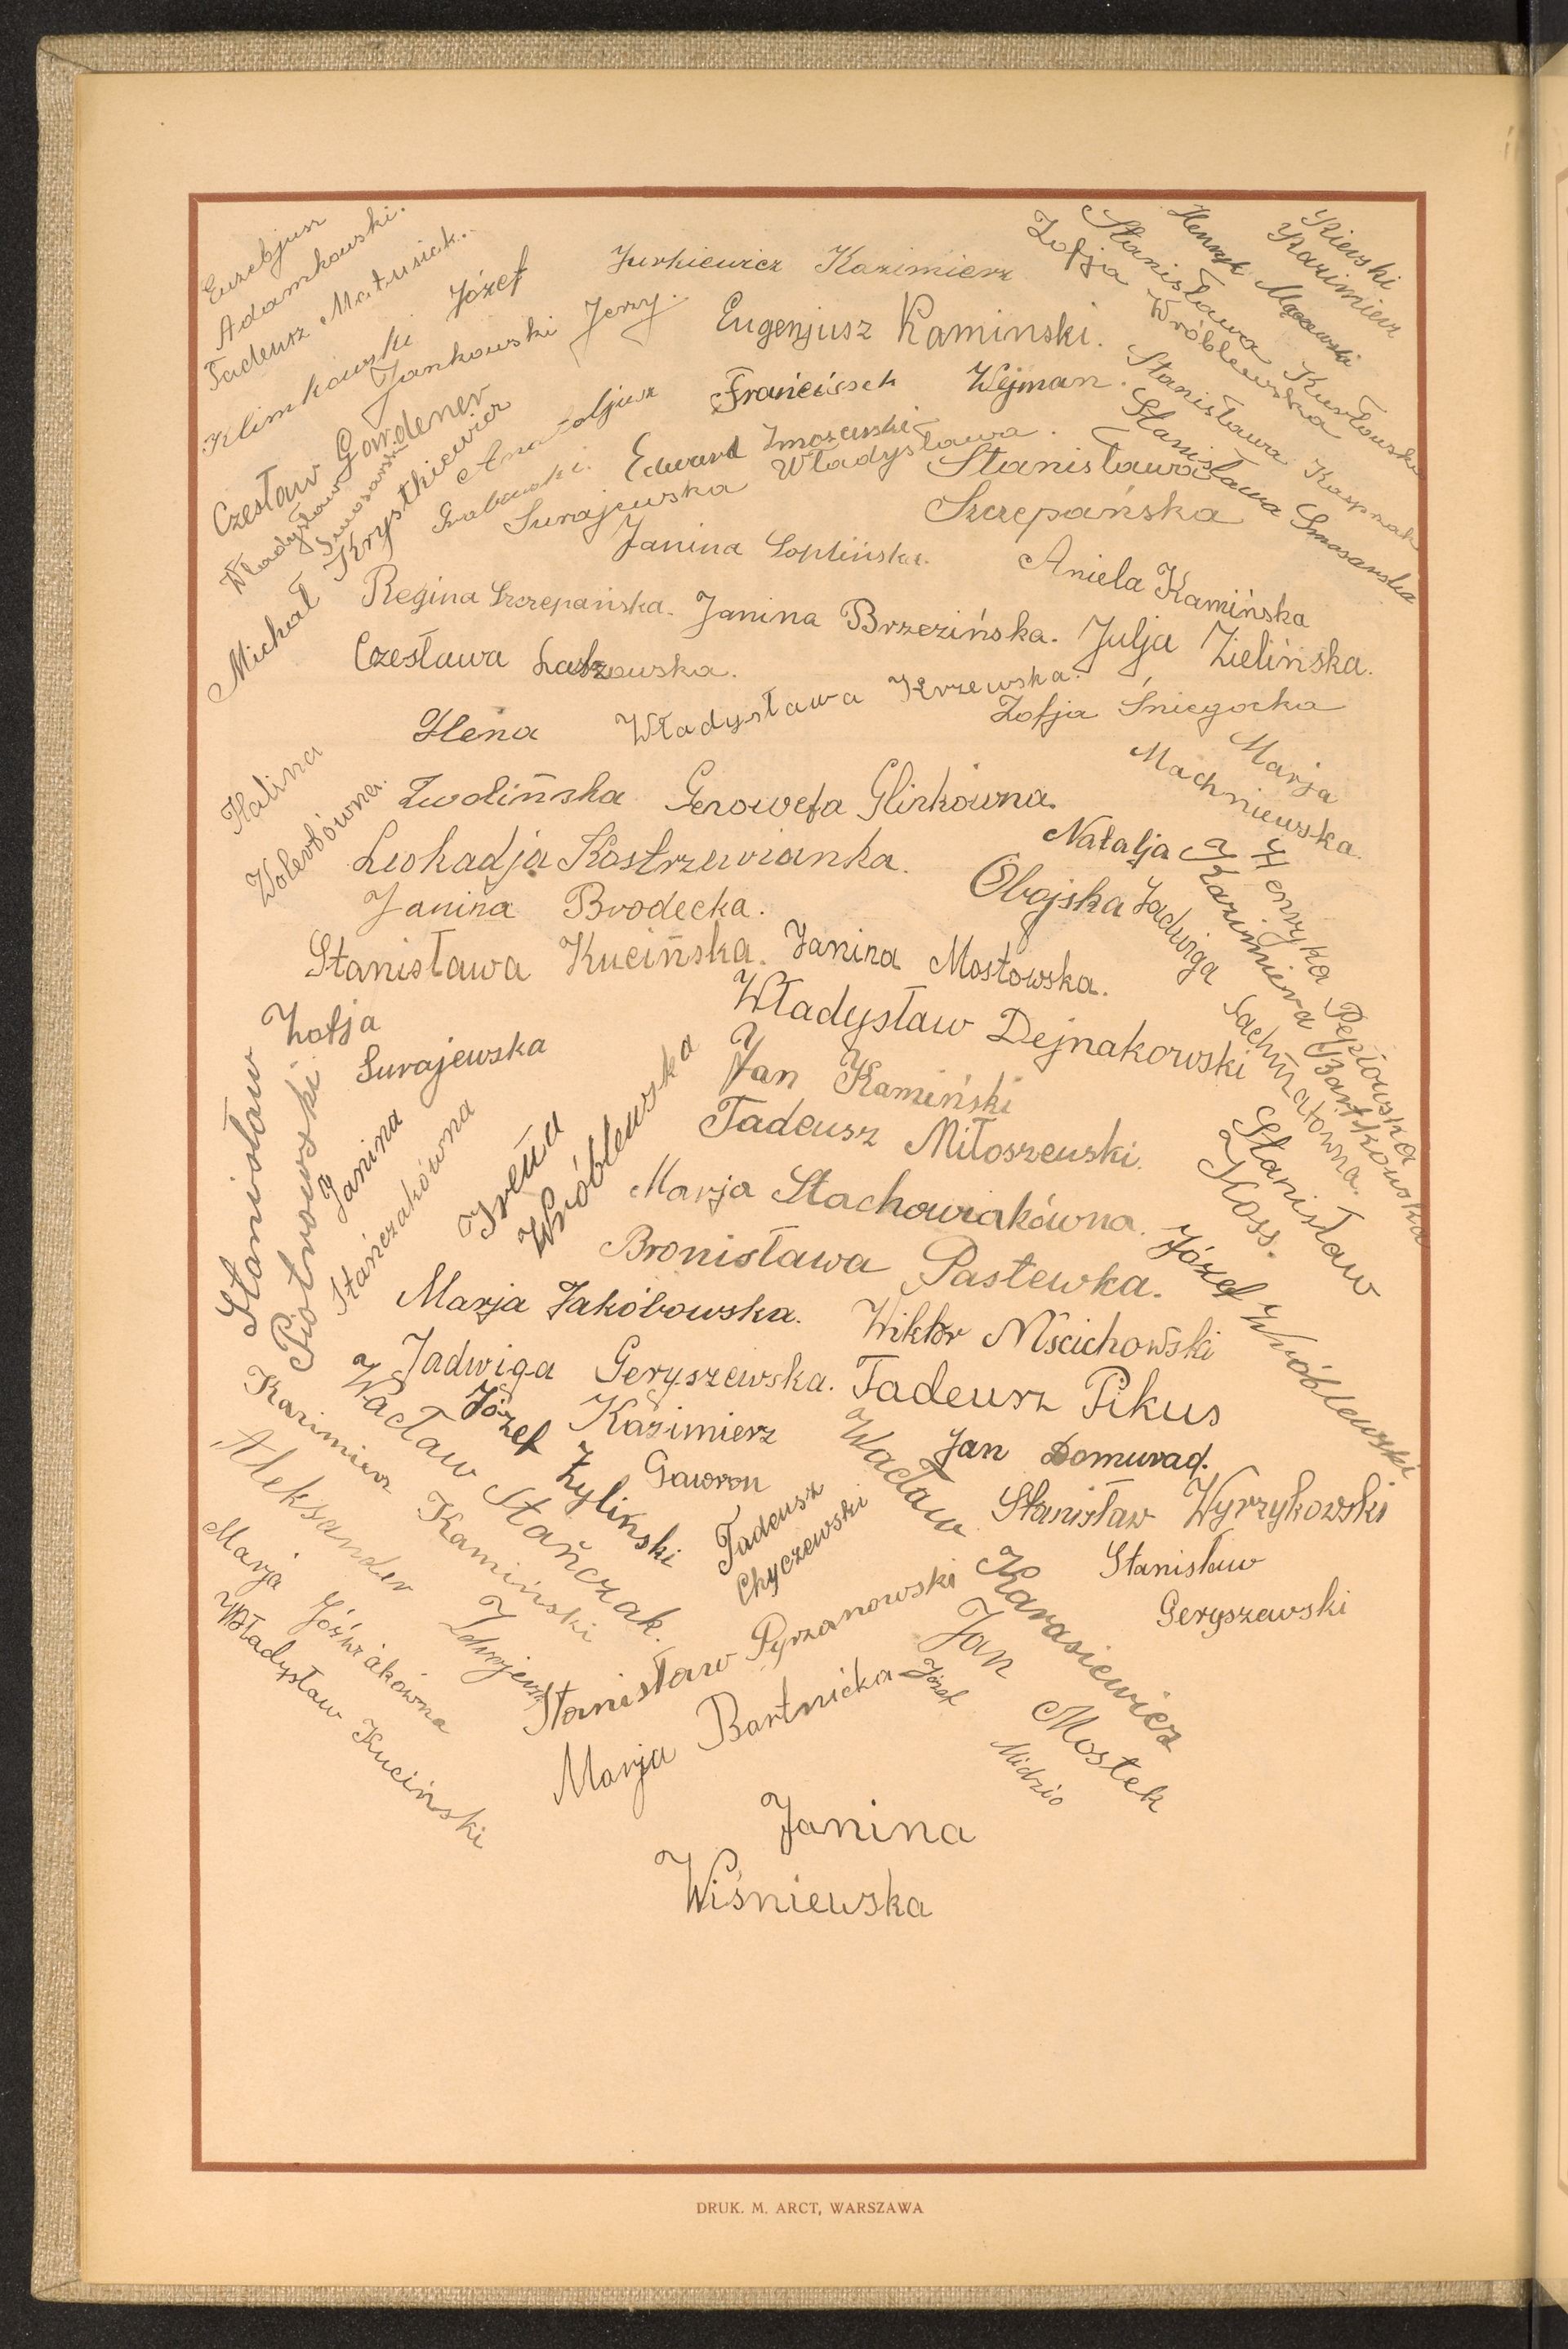 Euzebjusz
Adamkowski.
Tadeusz Matusiak.
Klimkowski Józef
Jankowski Jerzy.
Jurkiewicz Kazimierz
Eugenjusz Kaminski.
Kierski
Kazimierz
Henryk
Stanisława Kurłowska
Zofja Wróblewska
Stanisława Kasprzak
Stanisława Smosarska
Czesław Gardener
Władysław
Smosarski
Michał Krystkiewicz
Anatoljusz
Grabowski.
Franciszek Wejman.
Edward
Surajewska Władysława.
Stanisława
Szczepańska
Janina Soplińska.
Aniela Kamińska
Regina Szczepańska. Janina Brzezińska. Julja Zielińska.
Czesława
Władysława Krzewska.
Zofja Śniegocka
Marja
Machniewska.
Halina
Wolertówna.
Ilena
Zwolińska Genowefa Glinkówna.
Leokadja Kostrzewianka.
Natalja
Obojska
Janina Brodecka.
Stanisława Kucińska. Janina Mostowska.
Henryka Pepłowska
Kazimiera Bartkowska
Jadwiga
Zofja
Surajewska
Władysław Dejnakowski
Jan Kamiński
Tadeusz Miłoszewski.
Stanisław
Koss.
Stanisław
Piotrowski
Janina
Stańczakówna
Irena
Wróblewska
Marja Stachowiakówna.
Bronisława Pastewka.
Józef Wróblewski
Marja Jakóbowska. Wiktor Mścichowski
Jadwiga Geryszewska. Tadeusz Pikus
Kazimierz Kamiński
Wacław Stańczak.
Józef Żyliński
Kazimierz
Gawron
Jan Domurad.
Wacław Karasiewicz
Stanisław Wyrzykowski
Stanisław
Geryszewski
Aleksander
Marja Jóźwiakówna
Władysław Kuciński
Tadeusz
Chyczewski
Stanisław Pyrzanowski
Marja Bartnicka
Jan Mostek
Józef
Midzio
Janina
Wiśniewska
DRUK. M. ARCT, WARSZAWA